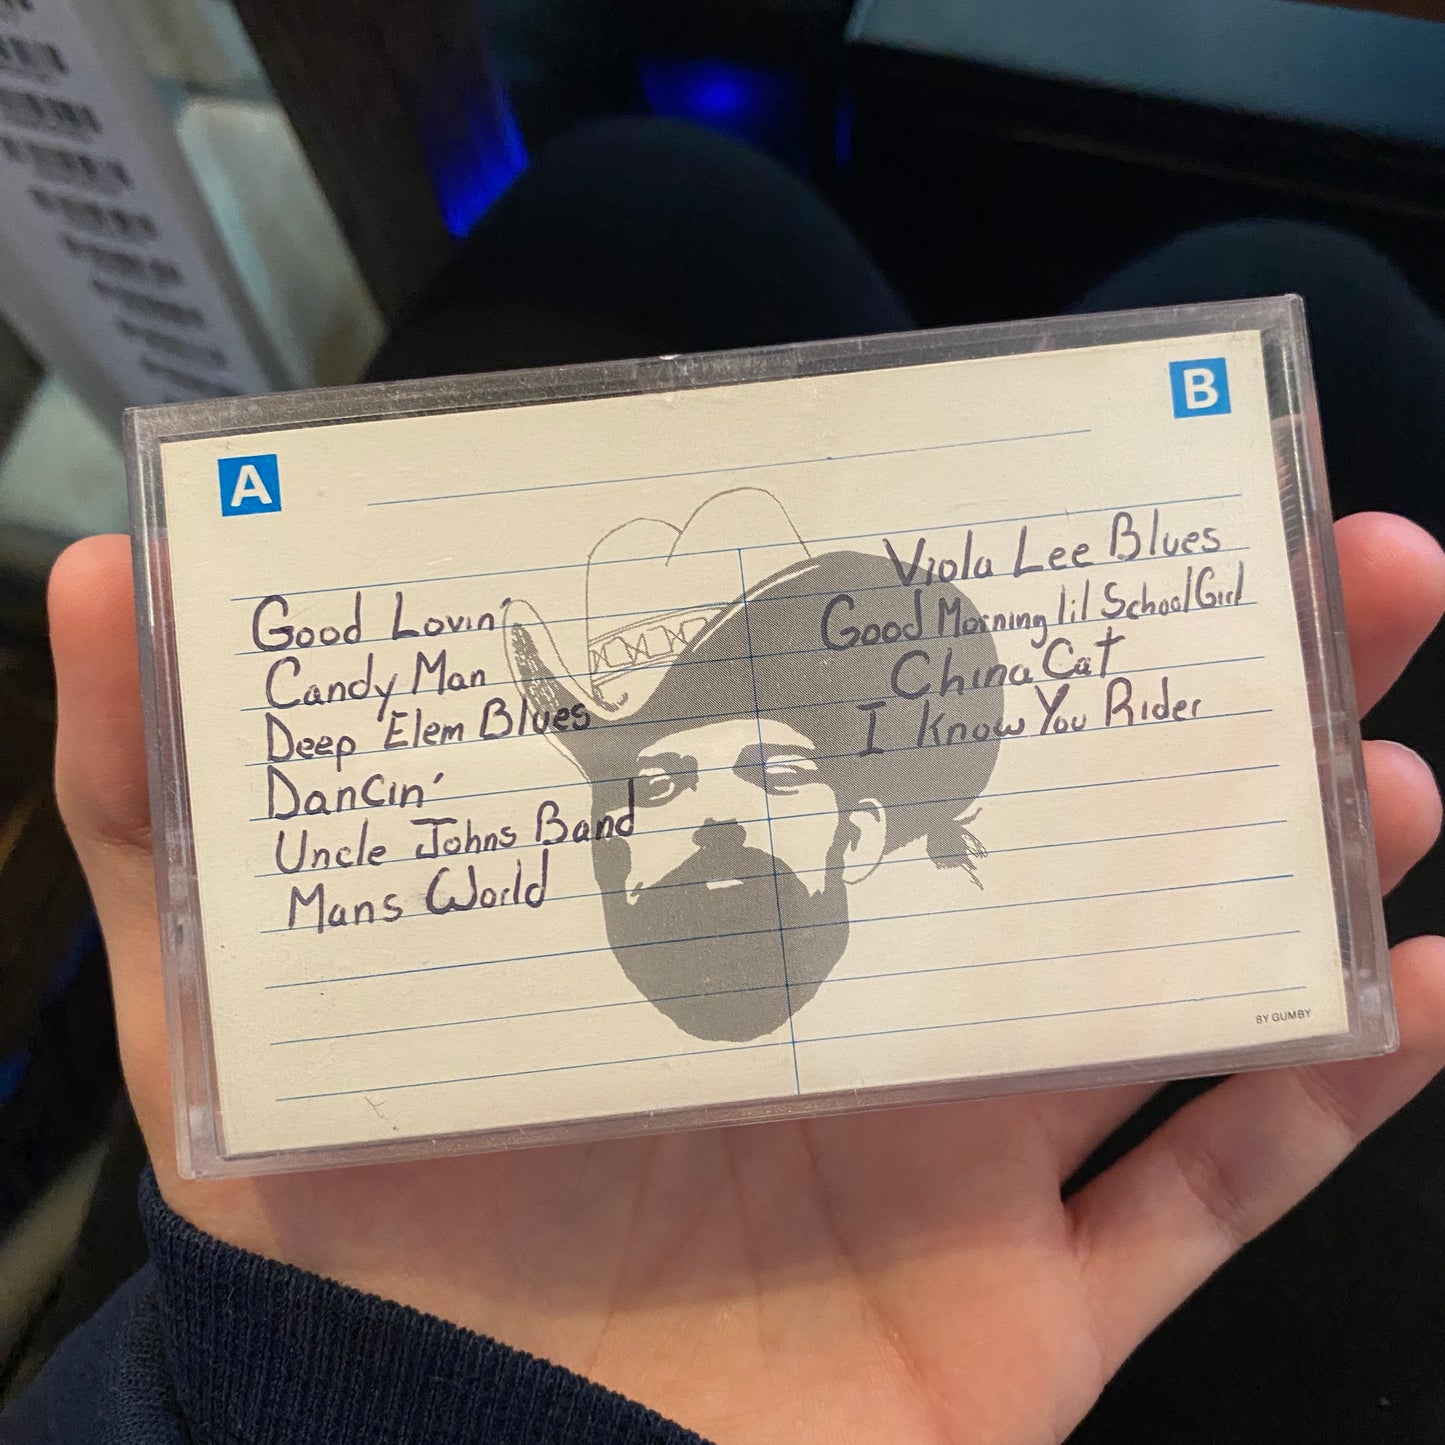 A
B
Good Lovin'
Candy Man
Deep Elem Blues
Dancin'
Uncle Johns Band
Mans World
Viola Lee Blues
Good Morning lil School Girl
China Cat
I Know You Rider
BY GUMBY